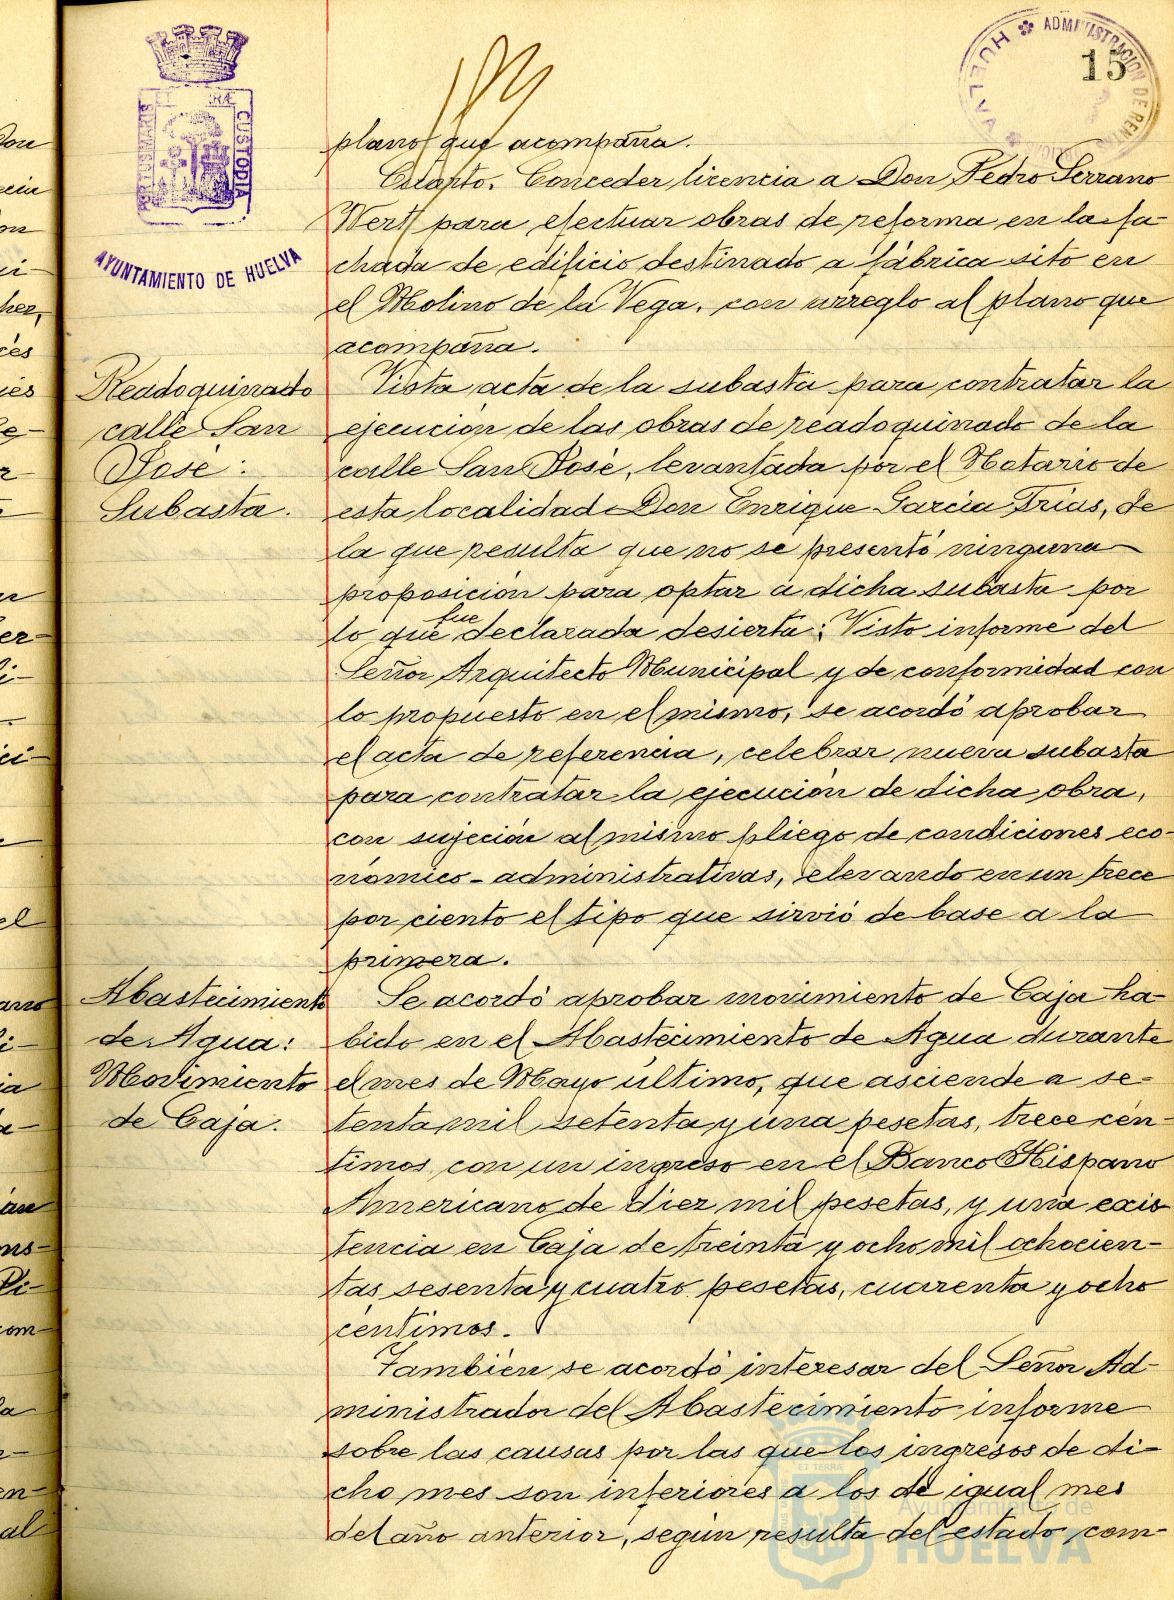 15
ADMINISTRACION DE RENTAS
HUELVA
PORTUS MARIS ET TERRÆ CUSTODIA
AYUNTAMIENTO DE HUELVA
plano que acompaña.
Cuarto. Conceder licencia a Don Pedro Serrano
Wert para efectuar obras de reforma en la fa-
chada de edificio destinado a fábrica sito en
el Molino de la Vega, con arreglo al plano que
acompaña.
Readoquinado
calle San
José:
Subasta.
Vista acta de la subasta para contratar la
ejecución de las obras de readoquinado de la
calle San José, levantada por el Notario de
esta localidad Don Enrique Garcia Frias, de
la que resulta que no se presentó ninguna
proposición para optar a dicha subasta por
lo que fue declarada desierta: Visto informe del
Señor Arquitecto Municipal y de conformidad con
lo propuesto en el mismo, se acordó aprobar
el acta de referencia, celebrar nueva subasta
para contratar la ejecución de dicha obra,
con sujeción al mismo pliego de condiciones eco-
nómico-administrativas, elevando en un trece
por ciento el tipo que sirvió de base a la
primera.
Abastecimiento
de Agua:
Movimiento
de Caja.
Se acordó aprobar movimiento de Caja ha-
bido en el Abastecimiento de Agua durante
el mes de Mayo último, que asciende a se-
tenta mil setenta y una pesetas, trece cén-
timos, con un ingreso en el Banco Hispano
Americano de diez mil pesetas, y una exis-
tencia en Caja de treinta y ocho mil ochocien-
tas sesenta y cuatro pesetas, cuarenta y ocho
céntimos.
También se acordó interesar del Señor Ad-
ministrador del Abastecimiento informe
sobre las causas por las que los ingresos de di-
cho mes son inferiores a los de igual mes
del año anterior, según resulta del estado com-
Ayuntamiento de
HUELVA